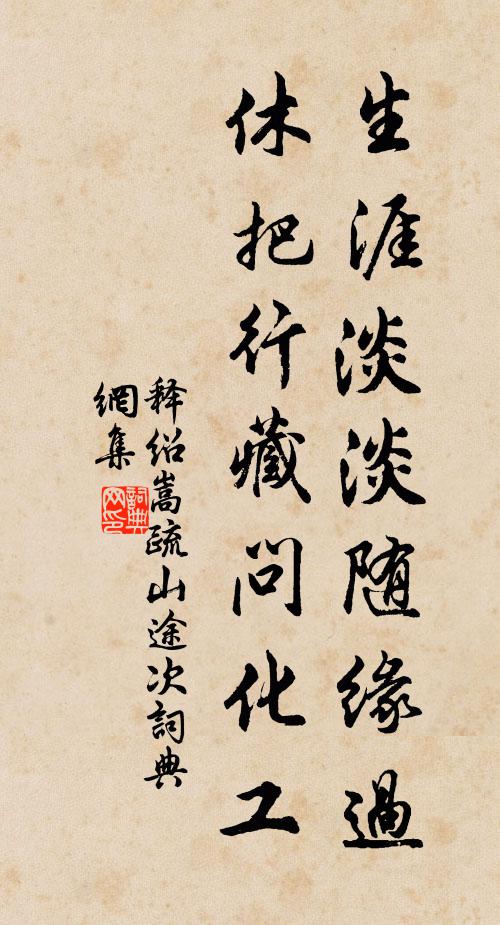 生涯淡淡随缘過
休把行藏問化工
释绍嵩疏山途次詞典
網集
詞典
网印